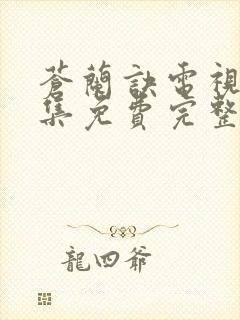 蒼蘭訣電視
集免費完整
龍四爺